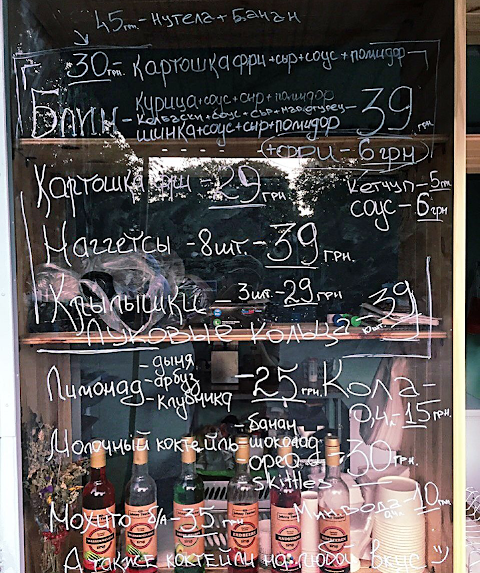 45грн. - Нутела + Банан
30грн. - картошка фри + сыр + соус + помидор
Блин - курица + соус + сыр + помидор
колбаски + соус + сыр + огурец - 39 грн.
шинка + соус + сыр + помидор
(+ фри - 6 грн)
Картошка фри - 29 грн
кетчуп - 5 грн
соус - 6 грн
Наггетсы - 8 шт. - 39 грн.
Крылышки - 3 шт. - 29 грн
Луковые кольца 39
Лимонад - дыня
- арбуз - 25 грн.
- клубника
Кола -
0,4 - 15 грн.
Молочный коктейль - банан
- шоколад
- орео - 30 грн.
- skittles
Мохито - б/а - 35 грн
Мин вода - 10 грн
А также коктейли на любой вкус :)